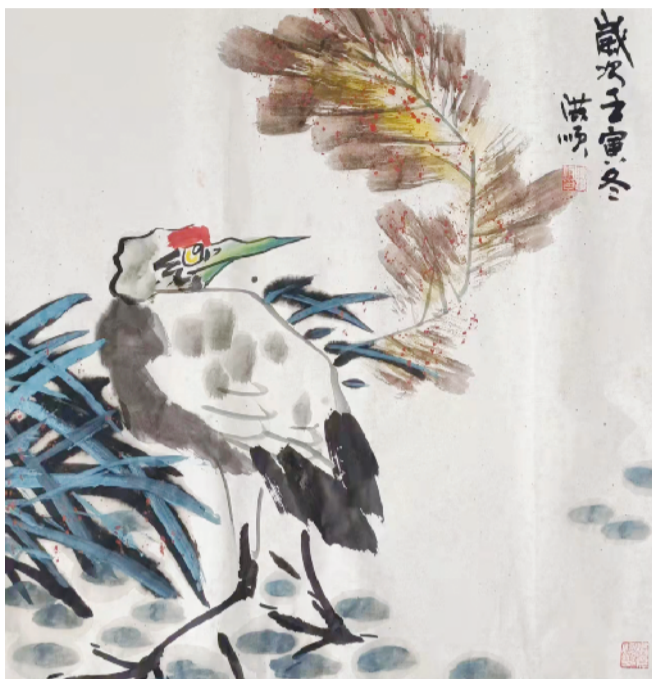 歲次壬寅冬
洪順